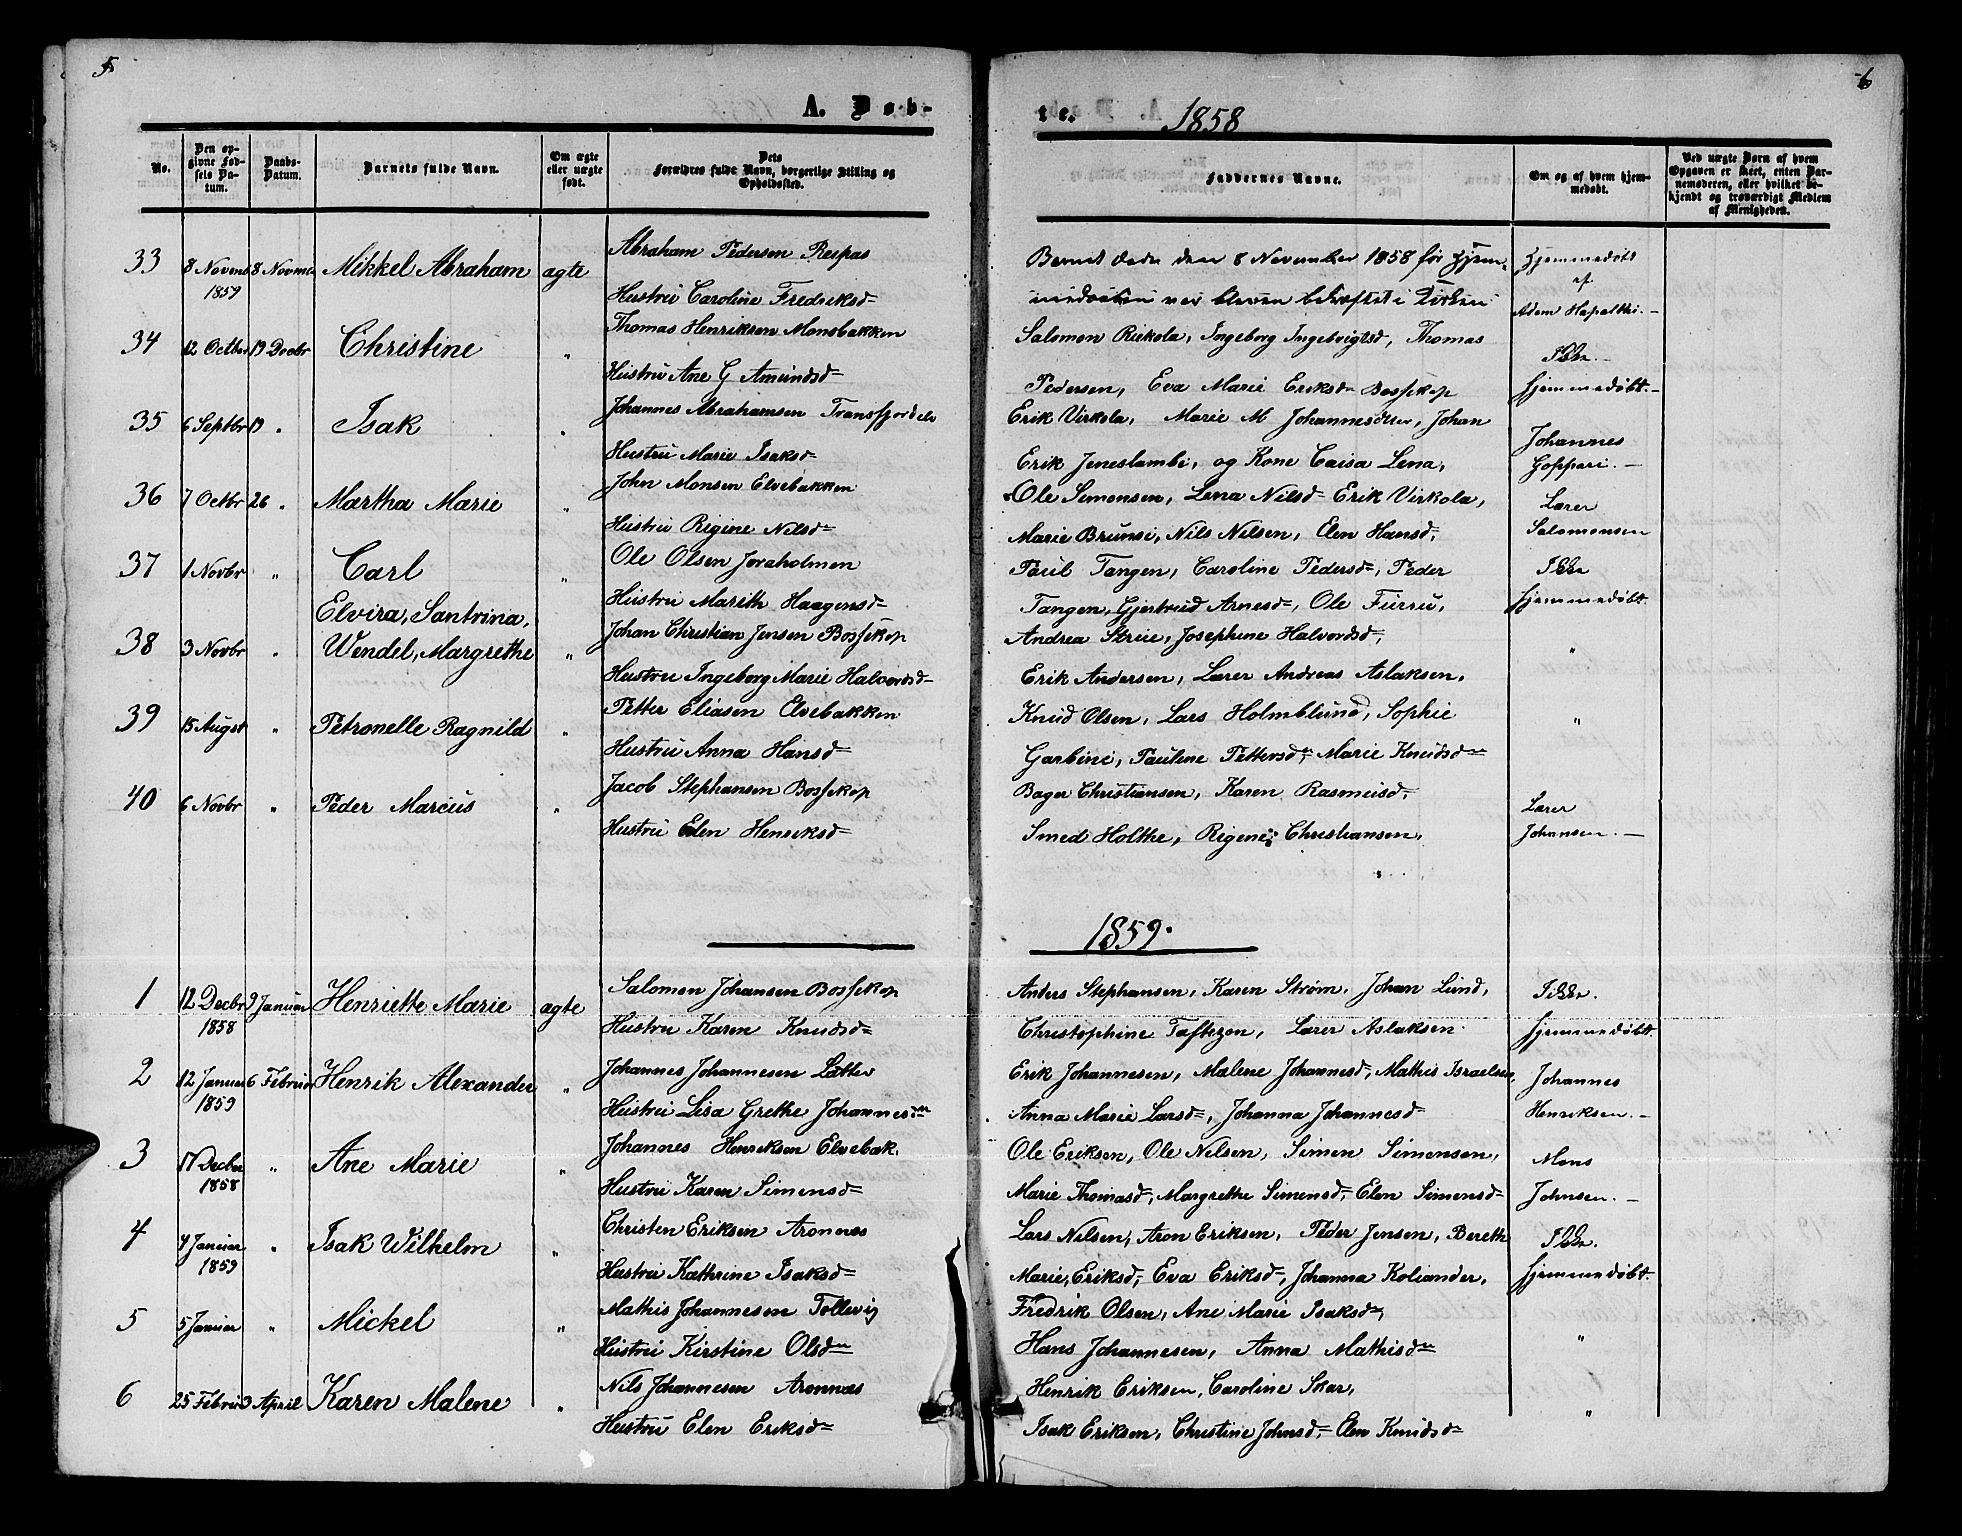 5
6
A. Døb-
te.
1858
No.
Den op-
givne Fød-
sels Da-
tum.
Daabs-
Datum.
Barnets fulde Navn.
Om ægte
eller uægte
født.
Dets
Forældres fulde Navn, borgerlige Stilling og
Opholdssted.
Faddernes Navne.
Om og af hvem hjem-
medøbt.
Ved uægte Børn af hvem
Opgaven er skeet, enten Bar-
nemoderen, eller hvilket be-
kjendt og troværdigt Medlem
af Menigheden.
33 8 Novem 8 Novem Mikkel Abraham ægte Abraham Pedersen Respas
1859
Hustru Caroline Fredriksd=
Barnet døde den 8 November 1858 før Hjem-
medaaben var bleven bekræftet i Kirken
Hjemmedøbt
af
Adam Hapalthi.—
34 12 Octbr 19 Decbr Christine " Thomas Henriksen Monsbakken
Hustru Ane G Amundsd=
Salomon Riskola, Ingeborg Ingebrigtsd, Thomas
Pedersen, Eva Marie Eriksd= Bossekop
Ikke.—
hjemmedøbt.—
35 6 Septbr 19 " Isak " Johannes Abrahamsen Transfjordelv
Hustru Marie Isaksd=
Erik Virkola, Marie M Johannesdtter, Johan
Erik Jeneslambi, og Kone Caisa Lena,
Johannes
Goppari.—
36 7 Octbr 26 " Martha Marie " John Monsen Elvebakken
Hustru Rigine Nilsd=
Ole Simonsen, Lena Nilsd= Erik Virkola,
Marie Brunsi, Nils Nilsen, Elen Hansd=
Lærer
Salomonsen
37 1 Novbr " Carl " Ole Olsen Joraholmen
Hustru Marith Haagensd=
Paul Tangen, Caroline Pedersd=, Peder
Tangen, Gjertrud Arnesd=, Ole Furru,
Ikke
hjemmedøbt.
38 3 Novbr " Elvira, Santrina,
Wendel, Margrethe " Johan Christian Jensen Bossekop
Hustru Ingeborg Marie Halvordsd=
Andrea Strue, Josephine Halvordsd=,
Erik Andersen, Lærer Andreas Aslaksen,
"
39 15 Augst " Petronelle Ragnild " Petter Eliasen Elvebakken
Hustru Anna Hansd=
Knud Olsen, Lars Holmblund, Sophie
Garbine, Pauline Pettersd=, Marie Knudsd=
"
40 6 Novbr " Peder Marcus " Jacob Stephansen Bossekop
Hustru Elen Henriksd=
Bager Christiansen, Karen Rasmusd=,
Smed Holthe, Rigine Christiansen,
Lærer
Johansen.—
1859.
1 12 Decbr 9 Januar Henriette Marie ægte Salomon Johansen Bossekop
1858
Hustru Karen Knudsd=
Anders Stephansen, Karen Strøm, Johan Lund,
Christophine Taftezon, Lærer Aslaksen.
Ikke.
hjemmedøbt.
2 12 Januar 6 Februar Henrik Alexander " Johannes Johannesen Latter
1859
Hustru Lisa Grethe Johannesdn
Erik Johannesen, Malene Johannesd=, Mathis Israelsen,
Anna Marie Larsd=, Johanna Johannesd=
Johannes
Henriksen.—
3 17 Decbr " Ane Marie " Johannes Henriksen Elvebak.
1858
Hustru Karen Simensd=
Ole Eriksen, Ole Nilsen, Simen Simensen,
Marie Thomasd=, Margrethe Simensd=, Elen Simensd=
Mons
Johnsen.—
4 4 Januar " Isak Wilhelm " Christen Eriksen Aronnæs
1859
Hustru Kathrine Isaksd=
Lars Nilsen, Aron Eriksen, Peder Jensen, Bereth
Marie Eriksd=, Eva Eriksd=, Johanna Koliander,
Ikke.
hjemmedøbt.
5 5 Januar " Mickel " Mathis Johannesen Tollevig
Hustru Kirstine Olsdn
Fredrik Olsen, Ane Marie Isaksd=,
Hans Johannesen, Anna Mathisdn
"
6 25 Februar 3 April Karen Malene " Nils Johannesen Aronnæs
Hustru Elen Eriksd=
Henrik Eriksen, Caroline Skar,
Isak Eriksen, Christine Johnsd=, Elen Knudsd=
"